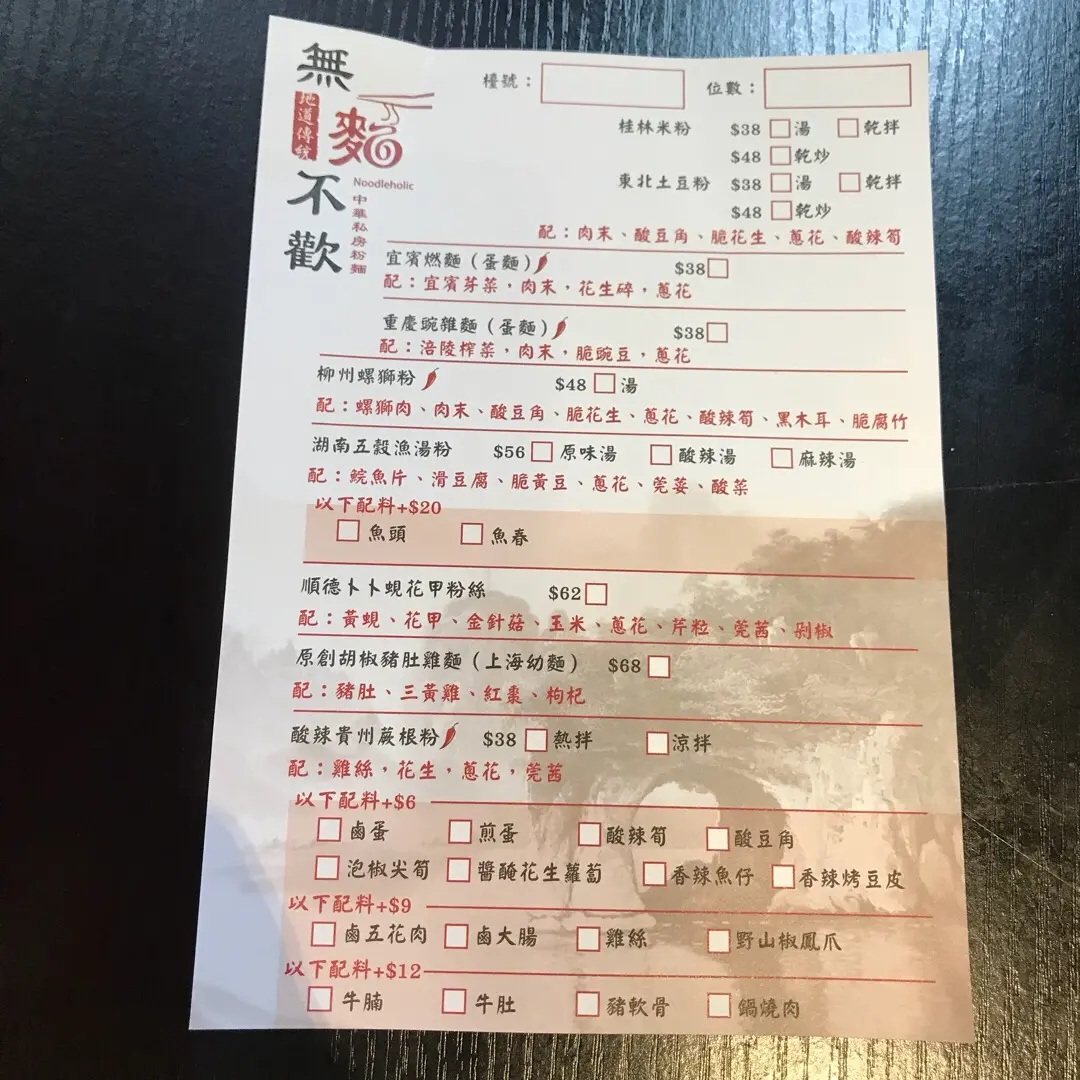 無麵不歡
地道傳統
Noodleholic
中華私房粉麵
檯號： 位數：
桂林米粉 $38 湯 乾拌
$48 乾炒
東北土豆粉 $38 湯 乾拌
$48 乾炒
配：肉末、酸豆角、脆花生、蔥花、酸辣筍
宜賓燃麵（蛋麵） $38
配：宜賓芽菜，肉末，花生碎，蔥花
重慶豌雜麵（蛋麵） $38
配：涪陵榨菜，肉末，脆豌豆，蔥花
柳州螺獅粉 $48 湯
配：螺獅肉、肉末、酸豆角、脆花生、蔥花、酸辣筍、黑木耳、脆腐竹
湖南五穀漁湯粉 $56 原味湯 酸辣湯 麻辣湯
配：鯇魚片、滑豆腐、脆黃豆、蔥花、莞荽、酸菜
以下配料+$20
魚頭 魚春
順德卜卜蜆花甲粉絲 $62
配：黃蜆、花甲、金針菇、玉米、蔥花、芹粒、莞茜、剁椒
原創胡椒豬肚雞麵（上海幼麵） $68
配：豬肚、三黃雞、紅棗、枸杞
酸辣貴州蕨根粉 $38 熱拌 涼拌
配：雞絲，花生，蔥花，莞茜
以下配料+$6
鹵蛋 煎蛋 酸辣筍 酸豆角
泡椒尖筍 醬醃花生蘿蔔 香辣魚仔 香辣烤豆皮
以下配料+$9
鹵五花肉 鹵大腸 雞絲 野山椒鳳爪
以下配料+$12
牛腩 牛肚 豬軟骨 鍋燒肉